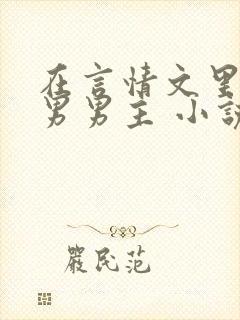 在言情文里
男男主 小説
嚴民范